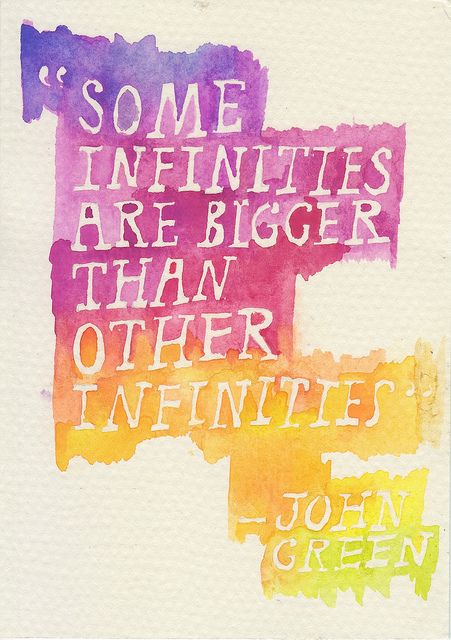 “SOME
INFINITIES
ARE BIGGER
THAN
OTHER
INFINITIES”
– JOHN
GREEN